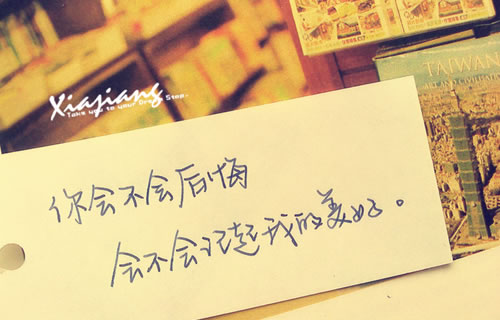 Xiajiang
Take us to your Grad Stop.
TAIWAN
ART AND CIVILIZA
你会不会后悔
会不会记起我的美好。